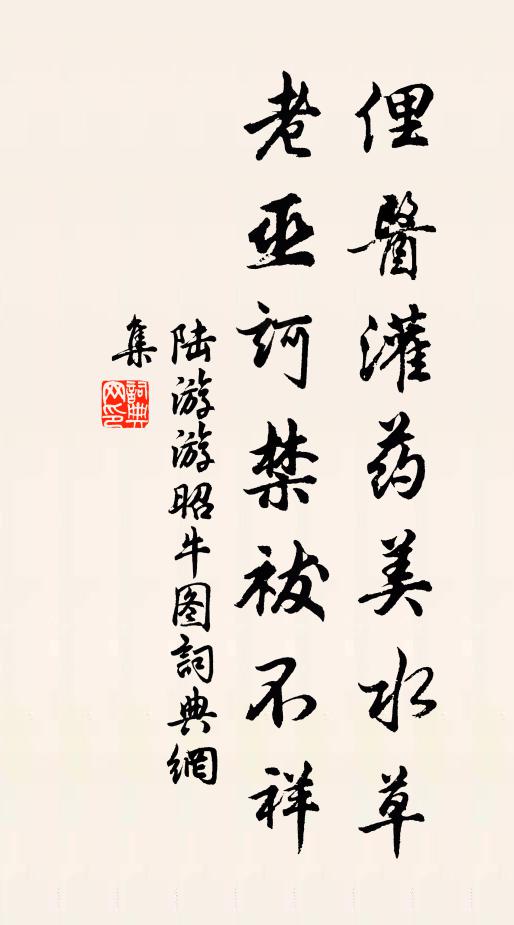 俚醫灌药美水草
老巫訶禁祓不祥
陆游游昭牛图詞典網
集
詞典
网印